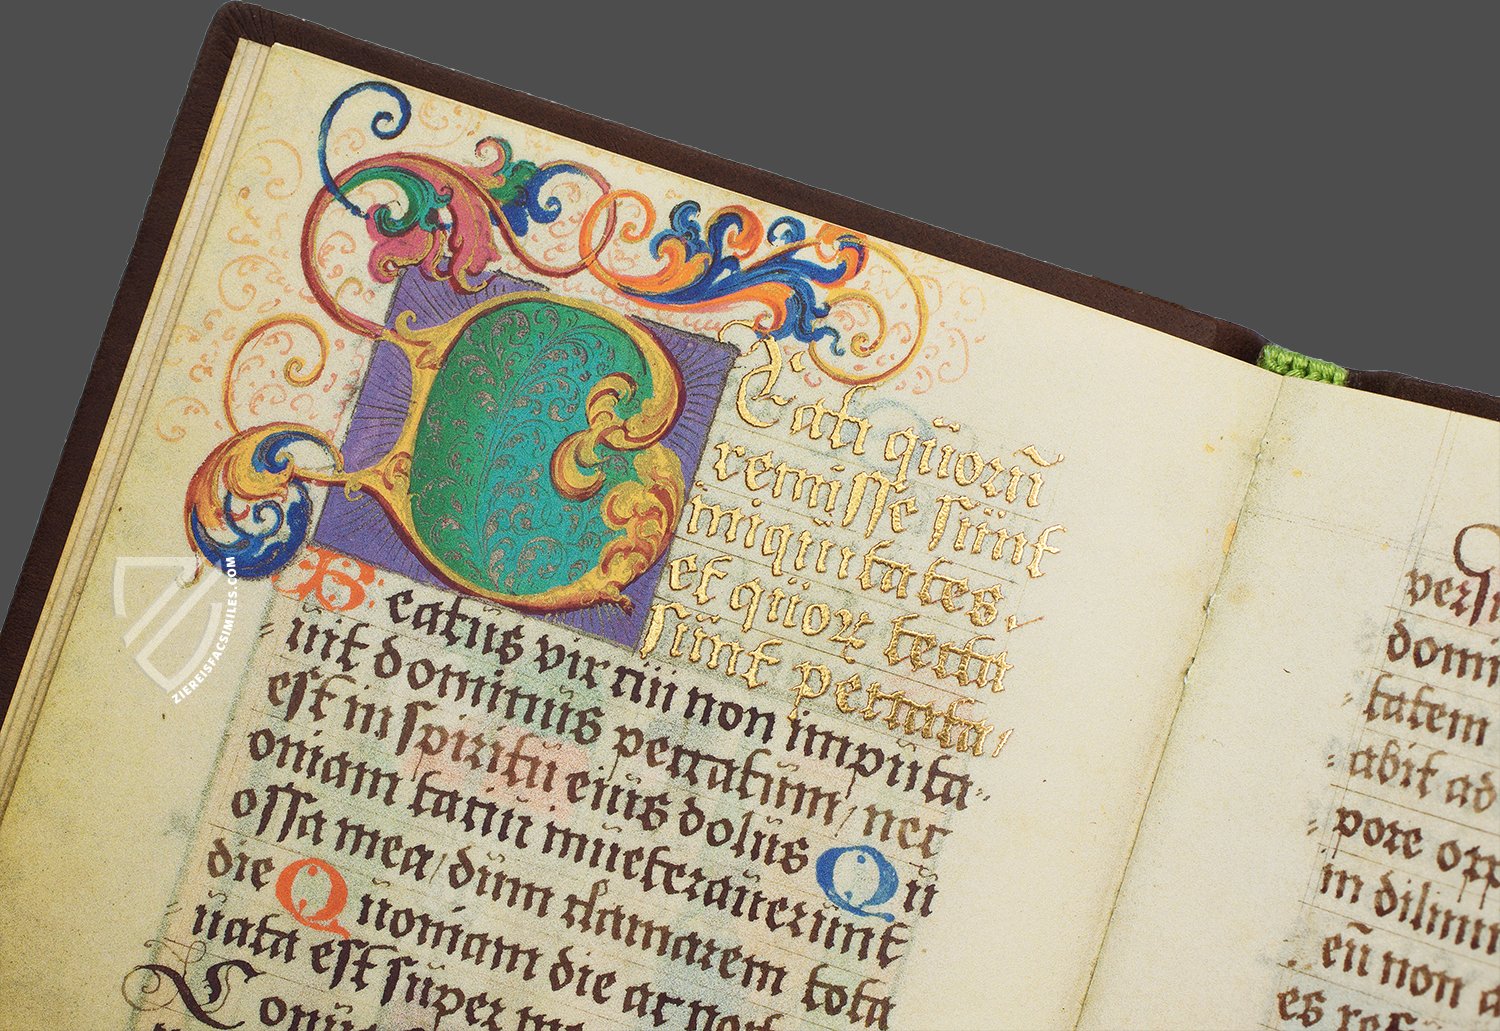 Beati quorū
remisse sunt
iniquitates.
et quorꝝ tecta
sunt peccata/
Beatus vir cui non imputa-
uit dominus peccatum/ nec
est in spiritu eius dolus Qu
oniam tacui inueterauerunt
ossa mea/ dum clamarem tota
die Quoniam die ac noct
uata est super me
Conu
domi
tatem
abit ad
pore opp
in diluui
eū non a
ZIEREISFACSIMILES.COM